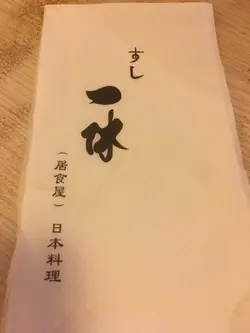 すし
一休
(居食屋) 日本料理